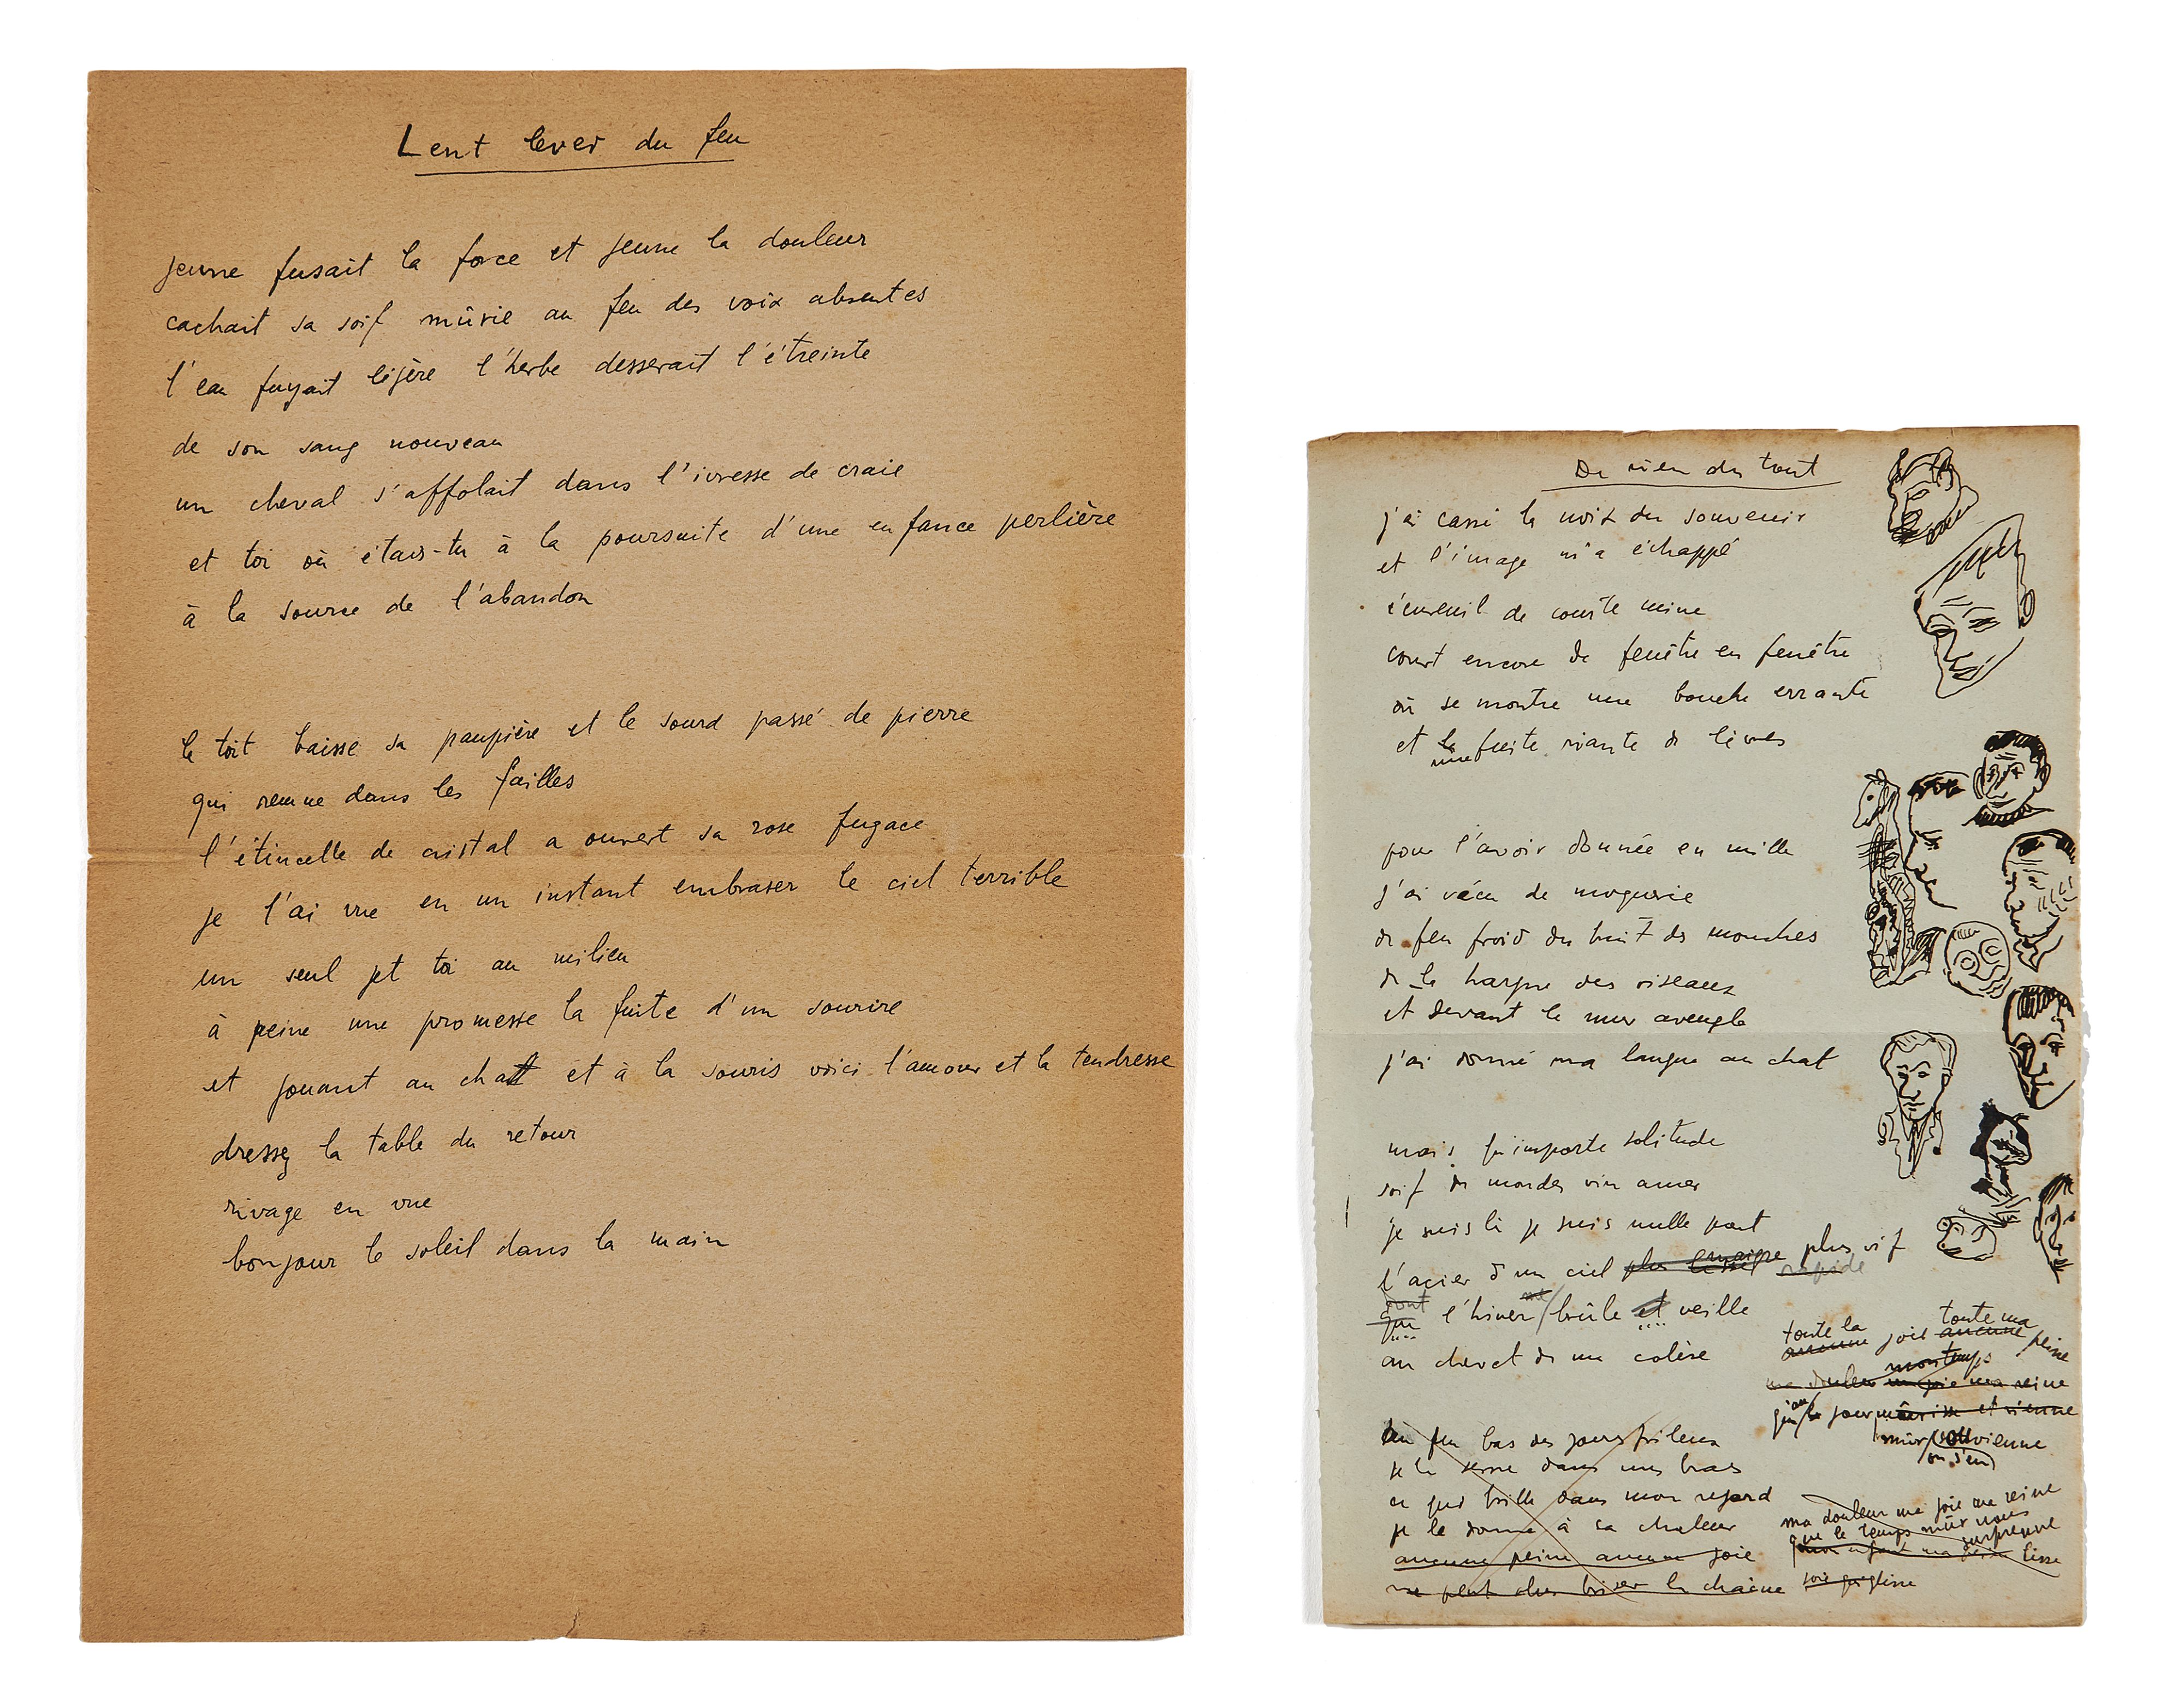 Lent lever du feu
jeune fusait la force et jeune la douleur
cachait sa soif mûrie au feu des voix absentes
l'eau fuyait légère l'herbe desserait l'étreinte
de son sang nouveau
un cheval s'affolait dans l'ivresse de craie
et toi où étais-tu à la poursuite d'une enfance perlière
à la source de l'abandon
le toit baisse sa paupière et le sourd passé de pierre
qui remue dans les failles
l'étincelle de cristal a ouvert sa rose fugace
je l'ai vue en un instant embraser le ciel terrible
un seul jet toi au milieu
à peine une promesse la fuite d'un sourire
et jouant au chat et à la souris voici l'amour et la tendresse
dressez la table du retour
rivage en vue
bonjour le soleil dans la main
De rien du tout
j'ai cassé la noix du souvenir
et l'image m'a échappé
écureuil de courte mine
court encore de fenêtre en fenêtre
où se montre une bouche errante
et la fuite riante de lèvres
une
pour l'avoir donnée en mille
j'ai vécu de moquerie
de feu froid du bruit des mouches
de la hargne des oiseaux
et devant le mur aveugle
j'ai donné ma langue au chat
mais qu'importe solitude
soif de mondes vin amer
je suis là je suis nulle part
l'acier d'un ciel plus lisse plus vif
rapide
dont
que l'hiver brûle et veille
au chevet de ma colère
toute la toute ma
aucune joie aucune peine
mon temps
ma douleur ma joie ma reine
jour mûrisse et vienne
mûr souvienne
on s'en
un feu bas des jours frileux
je le serre dans mes bras
ce qui brille dans mon regard
je le donne à sa chaleur
aucune peine aucune joie
ne peut plus briser la chaîne
ma douleur ma joie ma reine
que le temps mûr nous
surprenne
lisse
soie qui glisse